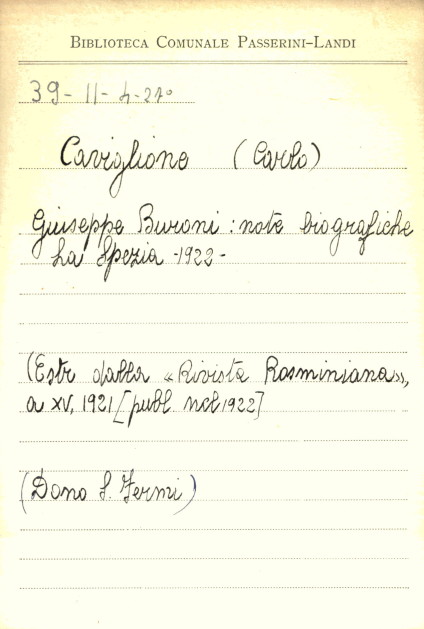 BIBLIOTECA COMUNALE PASSERINI-LANDI
39-11-4-27º
Caviglione (Carlo)
Giuseppe Buroni : note biografiche
La Spezia -1922-
(Estr dalla «Rivista Rosminiana»,
a XV, 1921 [publ nel 1922]
(Dono S. Fermi)